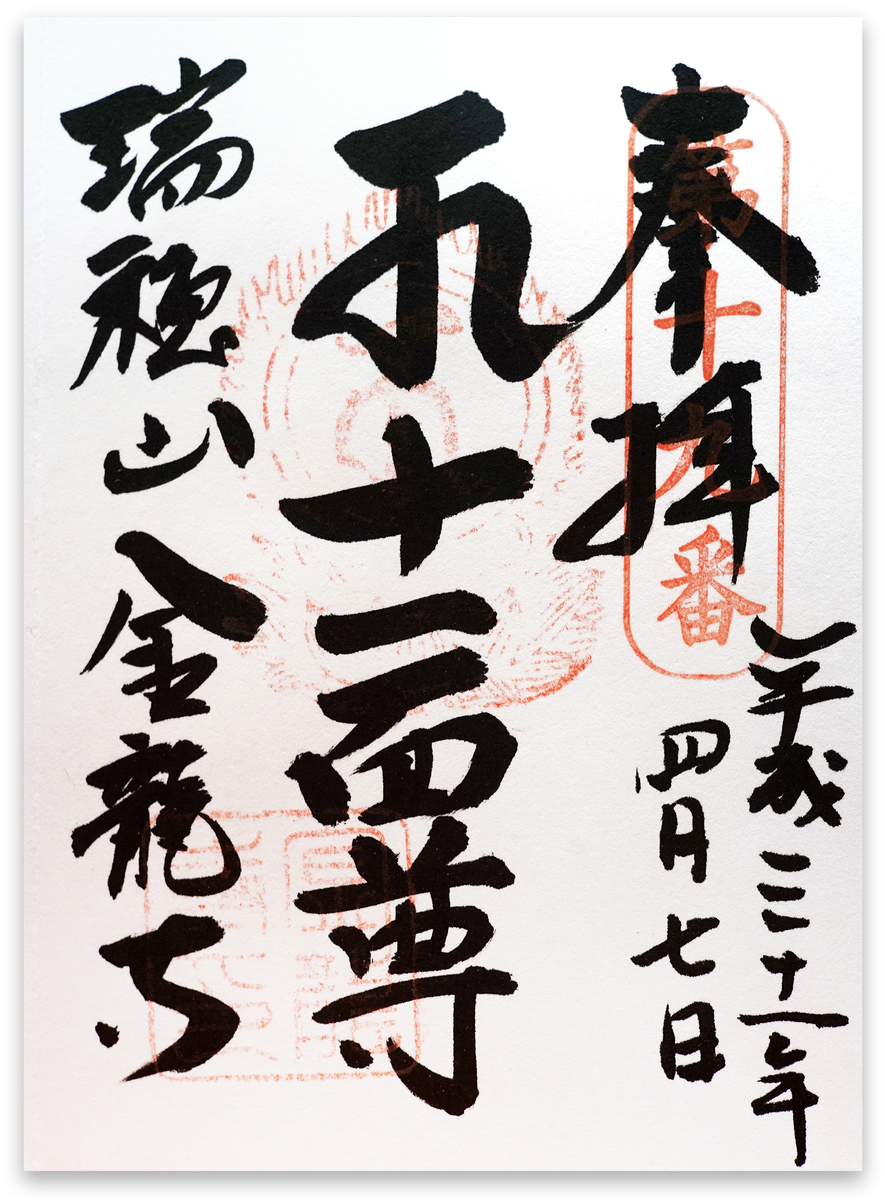 奉拝
第十九番
平成三十一年
四月七日
十一面尊
瑞穂山 金龍寺